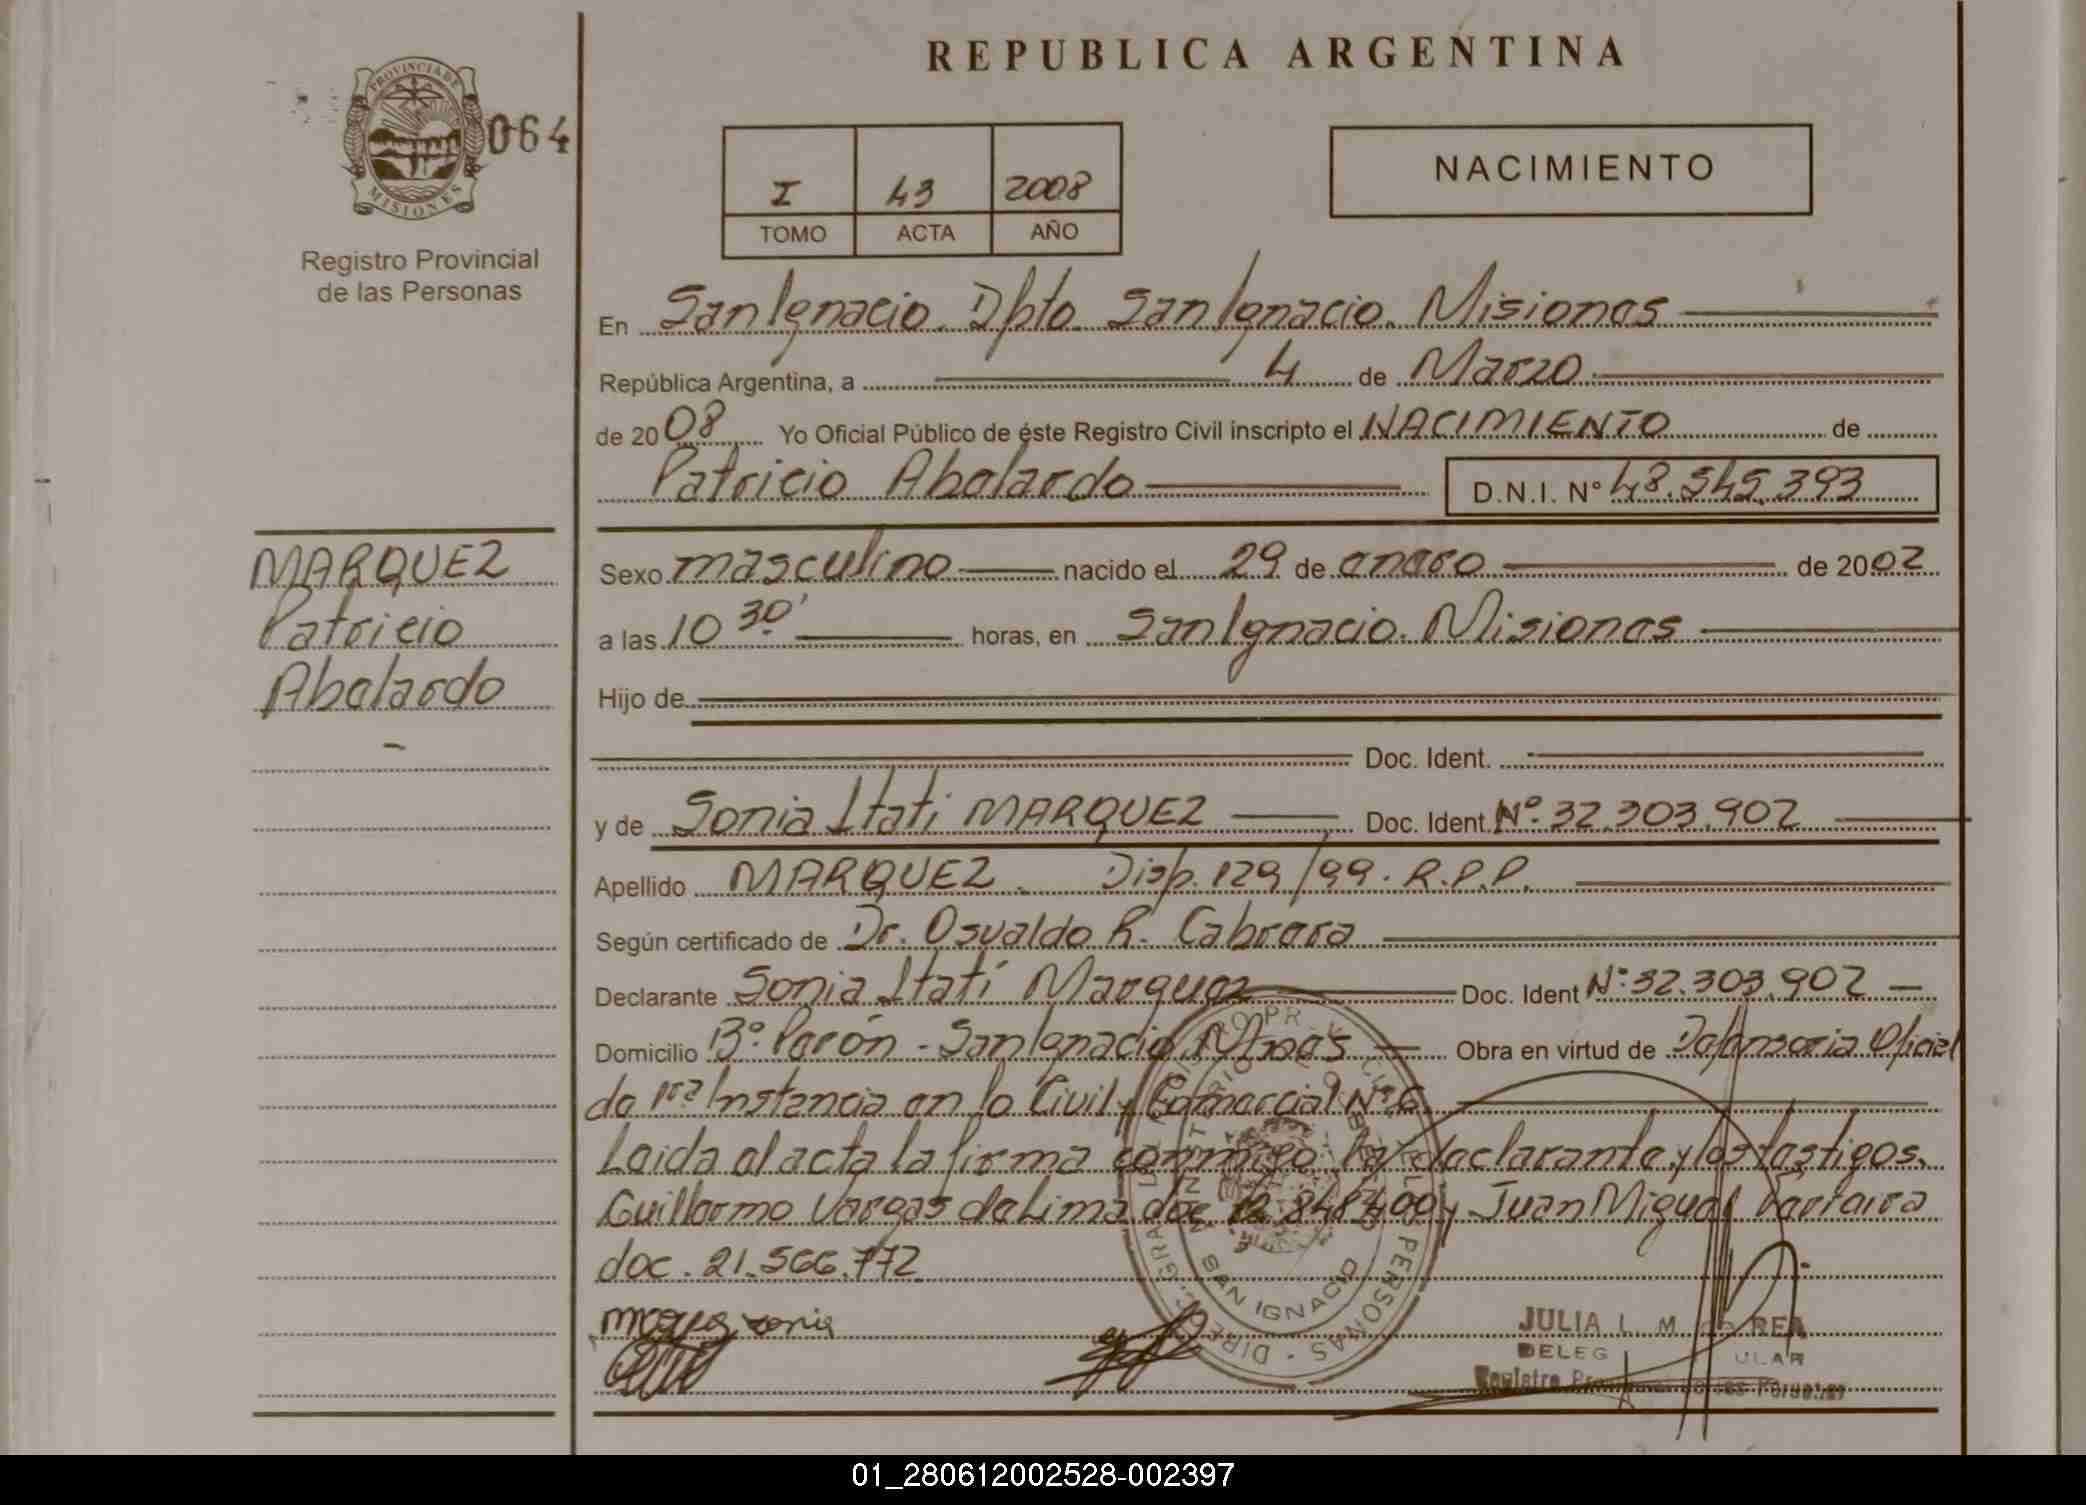 REPUBLICA ARGENTINA
PROVINCIA DE
MISIONES
064
Registro Provincial
de las Personas
I 43 2008
TOMO ACTA AÑO
NACIMIENTO
En San Ignacio. Dpto. San Ignacio. Misiones
República Argentina, a 4 de Marzo
de 2008 Yo Oficial Público de éste Registro Civil inscripto el NACIMIENTO de
Patricio Abelardo D.N.I. N° 48.545.393
MARQUEZ
Patricio
Abelardo
Sexo masculino nacido el 29 de enero de 2002
a las 10 30' horas, en San Ignacio. Misiones
Hijo de
Doc. Ident.
y de Sonia Itati MARQUEZ Doc. Ident. Nº. 32.303.902
Apellido MARQUEZ. Disp. 129/99. R.P.P.
Según certificado de Dr. Osvaldo R. Cabrera
Declarante Sonia Itatí Marquez Doc. Ident N° 32.303.902
Domicilio Bº. Perón - San Ignacio Mnes Obra en virtud de Defensoria Oficial
de 1ra Instancia en lo Civil y Comercial Nº 6
Leida el acta la firma conmigo la declarante y los testigos.
Guillermo Vargas de Lima doc. 12.848.400 y Juan Miguel Ferreira
doc. 21.566.772
SAN IGNACIO
PERSONAS
JULIA L. M.
DELEG ULAR
Registro Provincial de las Personas
01_280612002528-002397